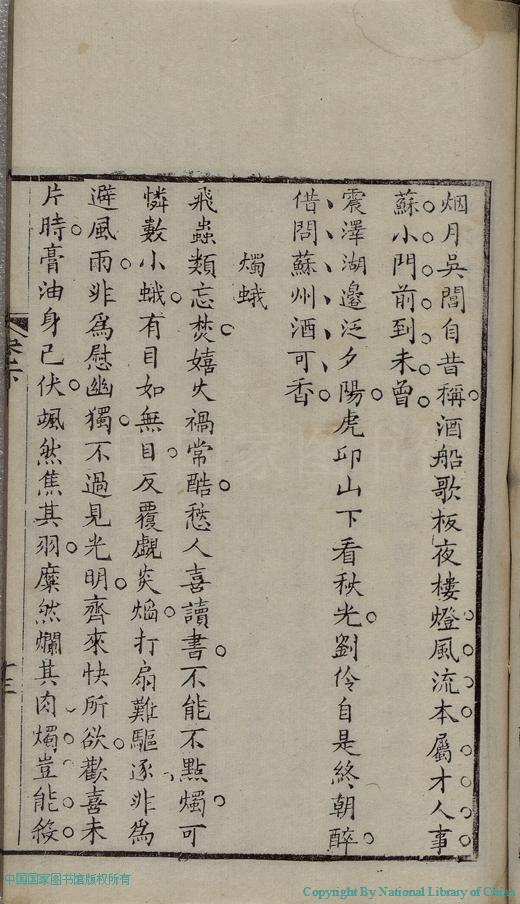 烟月吳閶自昔稱酒船歌板夜樓燈風流本屬才人事
蘇小門前到未曾
震澤湖邊泛夕陽虎邱山下看秋光劉伶自是終朝醉
借問蘇州酒可香
燭蛾
飛蟲類忘焚嬉火禍常酷愁人喜讀書不能不點燭可
憐數小蛾有目如無目反覆覷炎焰打扇難驅逐非為
避風雨非為慰幽獨不過見光明齊來快所欲歡喜未
片時膏油身已伏颯然焦其羽糜然爛其肉燭豈能殺
十三
中国国家图书馆版权所有
Copyright By National Library of China